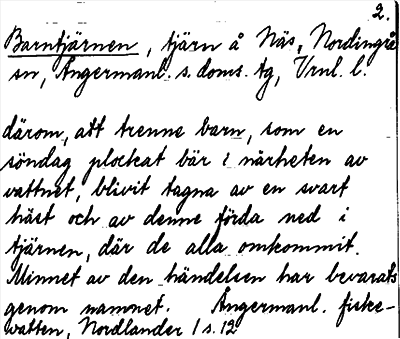 2.
Barntjärnen, tjärn å Näs, Nordingrå
sn, Ångermanl. s. doms. tg, Vrnl. l.
därom, att trenne barn, som en
söndag plockat bär i närheten av
vattnet, blivit tagna av en svart
häst och av denne förda ned i
tjärnen, där de alla omkommit.
Minnet av den händelsen har bevarats
genom namnet. Ångermanl. fiske-
vatten, Nordlander 1 s. 12